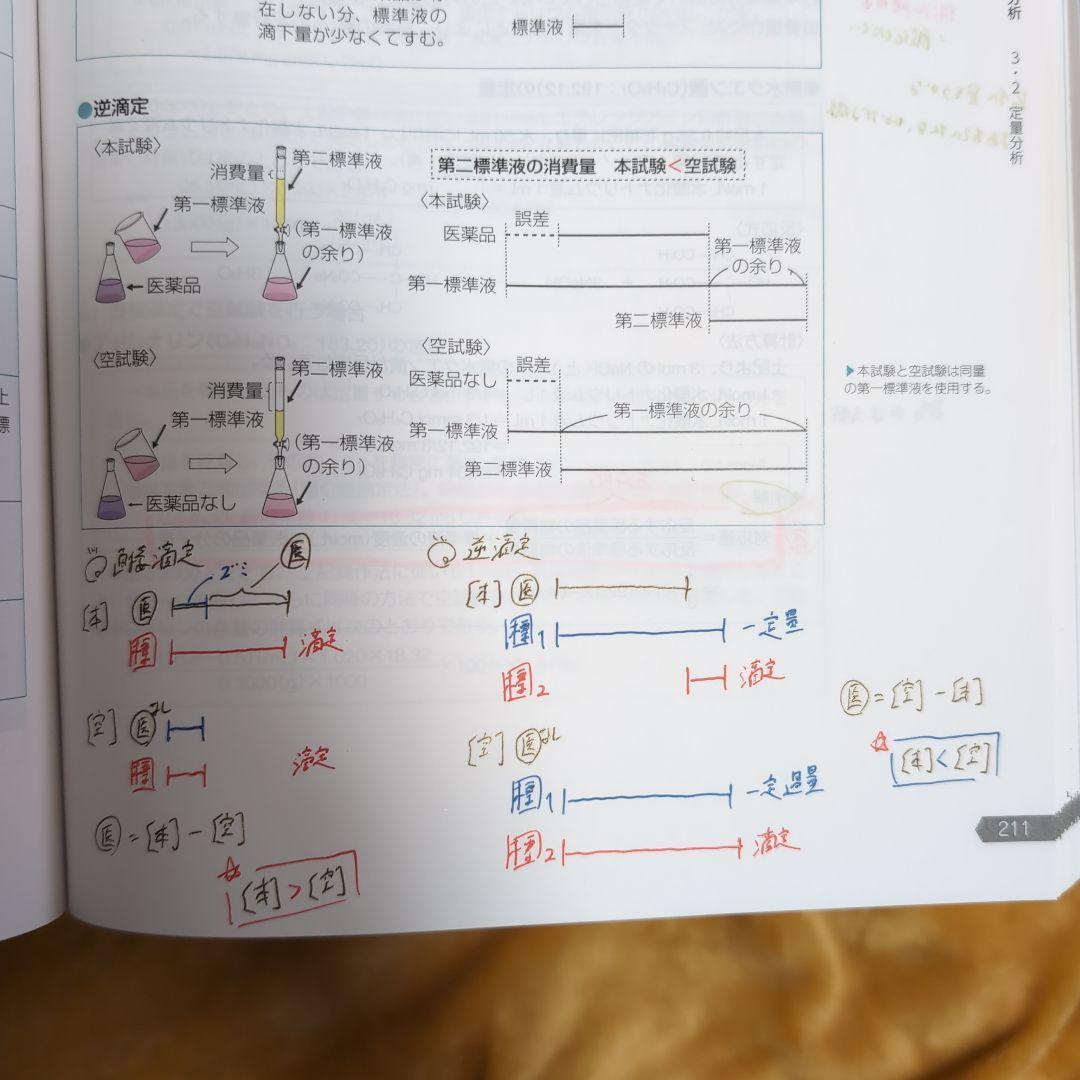 在しない分、標準液の
滴下量が少なくてすむ。
標準液
分析 3・2 定量分析
●逆滴定
〈本試験〉
消費量
第二標準液
第一標準液
(第一標準液
の余り)
←医薬品
第二標準液の消費量 本試験<空試験
〈本試験〉
誤差
医薬品
第一標準液
の余り
第一標準液
第二標準液
〈空試験〉
第二標準液
消費量
第一標準液
(第一標準液
の余り)
←医薬品なし
〈空試験〉
誤差
医薬品なし
第一標準液の余り
第一標準液
第二標準液
▶本試験と空試験は同量
の第一標準液を使用する。
直接滴定
ゴミ
医
[本] 医
標 滴定
[空] 医なし
標 滴定
医=[本]-[空]
☆ [本]>[空]
逆滴定
[本] 医
標1 一定量
標2 滴定
[空] 医なし
標1 一定過量
標2 滴定
医=[空]-[本]
☆ [本]<[空]
211